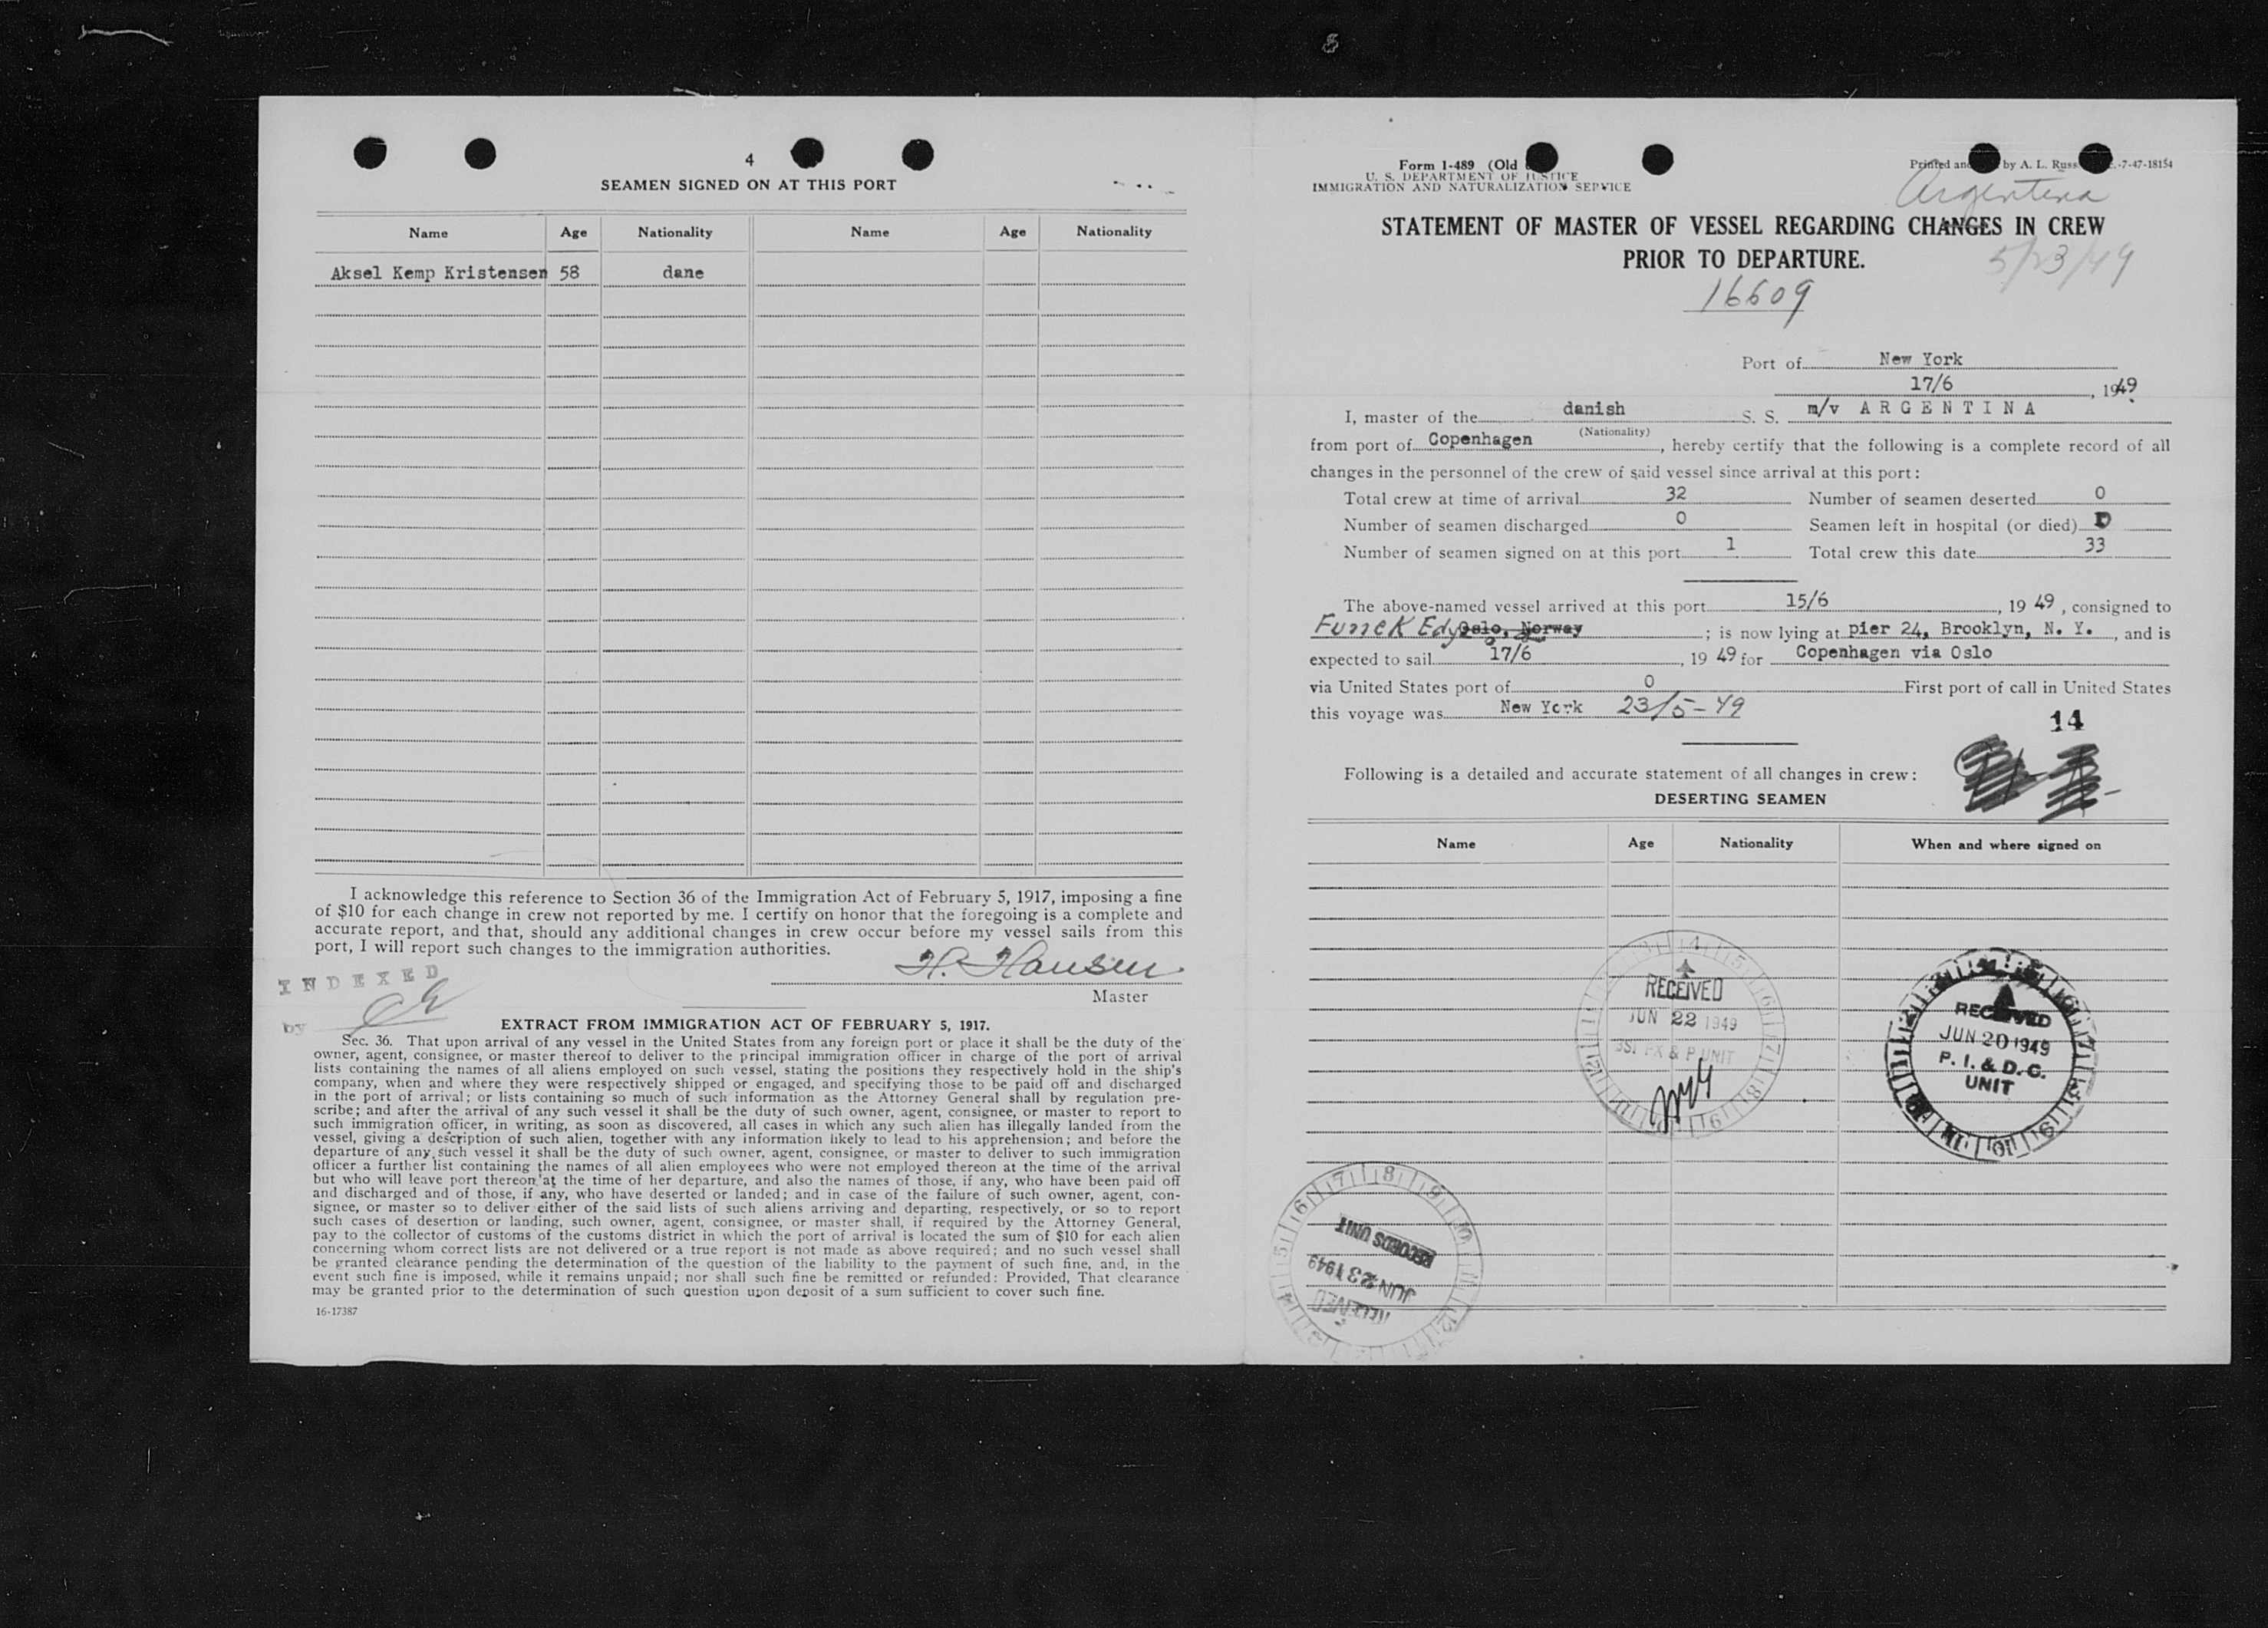 4
SEAMEN SIGNED ON AT THIS PORT
Name Age Nationality Name Age Nationality
Aksel Kemp Kristensen 58 dane
I acknowledge this reference to Section 36 of the Immigration Act of February 5, 1917, imposing a fine
of $10 for each change in crew not reported by me. I certify on honor that the foregoing is a complete and
accurate report, and that, should any additional changes in crew occur before my vessel sails from this
port, I will report such changes to the immigration authorities.
H. Hansen
Master
INDEXED
by
EXTRACT FROM IMMIGRATION ACT OF FEBRUARY 5, 1917.
Sec. 36. That upon arrival of any vessel in the United States from any foreign port or place it shall be the duty of the
owner, agent, consignee, or master thereof to deliver to the principal immigration officer in charge of the port of arrival
lists containing the names of all aliens employed on such vessel, stating the positions they respectively hold in the ship's
company, when and where they were respectively shipped or engaged, and specifying those to be paid off and discharged
in the port of arrival; or lists containing so much of such information as the Attorney General shall by regulation pre-
scribe; and after the arrival of any such vessel it shall be the duty of such owner, agent, consignee, or master to report to
such immigration officer, in writing, as soon as discovered, all cases in which any such alien has illegally landed from the
vessel, giving a description of such alien, together with any information likely to lead to his apprehension; and before the
departure of any such vessel it shall be the duty of such owner, agent, consignee, or master to deliver to such immigration
officer a further list containing the names of all alien employees who were not employed thereon at the time of the arrival
but who will leave port thereon at the time of her departure, and also the names of those, if any, who have been paid off
and discharged and of those, if any, who have deserted or landed; and in case of the failure of such owner, agent, con-
signee, or master so to deliver either of the said lists of such aliens arriving and departing, respectively, or so to report
such cases of desertion or landing, such owner, agent, consignee, or master shall, if required by the Attorney General,
pay to the collector of customs of the customs district in which the port of arrival is located the sum of $10 for each alien
concerning whom correct lists are not delivered or a true report is not made as above required; and no such vessel shall
be granted clearance pending the determination of the question of the liability to the payment of such fine, and, in the
event such fine is imposed, while it remains unpaid; nor shall such fine be remitted or refunded: Provided, That clearance
may be granted prior to the determination of such question upon deposit of a sum sufficient to cover such fine.
16-17387
Form I-489 (Old
U. S. DEPARTMENT OF JUSTICE
IMMIGRATION AND NATURALIZATION SERVICE
Printed and by A. L. Russ -7-47-18154
Argentina
STATEMENT OF MASTER OF VESSEL REGARDING CHANGES IN CREW
PRIOR TO DEPARTURE.
5/23/49
16609
Port of New York
17/6, 1949
I, master of the danish S. S. m/v ARGENTINA
(Nationality)
from port of Copenhagen, hereby certify that the following is a complete record of all
changes in the personnel of the crew of said vessel since arrival at this port:
Total crew at time of arrival 32 Number of seamen deserted 0
Number of seamen discharged 0 Seamen left in hospital (or died) 0
Number of seamen signed on at this port 1 Total crew this date 33
The above-named vessel arrived at this port 15/6, 1949, consigned to
Funck Edye Oslo, Norway; is now lying at pier 24, Brooklyn, N. Y., and is
expected to sail 17/6, 1949 for Copenhagen via Oslo
via United States port of 0 First port of call in United States
this voyage was New York 23/5-49
14
Following is a detailed and accurate statement of all changes in crew:
DESERTING SEAMEN
Name Age Nationality When and where signed on
RECEIVED
JUN 22 1949
& P UNIT
RECEIVED
JUN 20 1949
P. I. & D. C.
UNIT
RECORDS UNIT
JUN 23 1949
RECEIVED